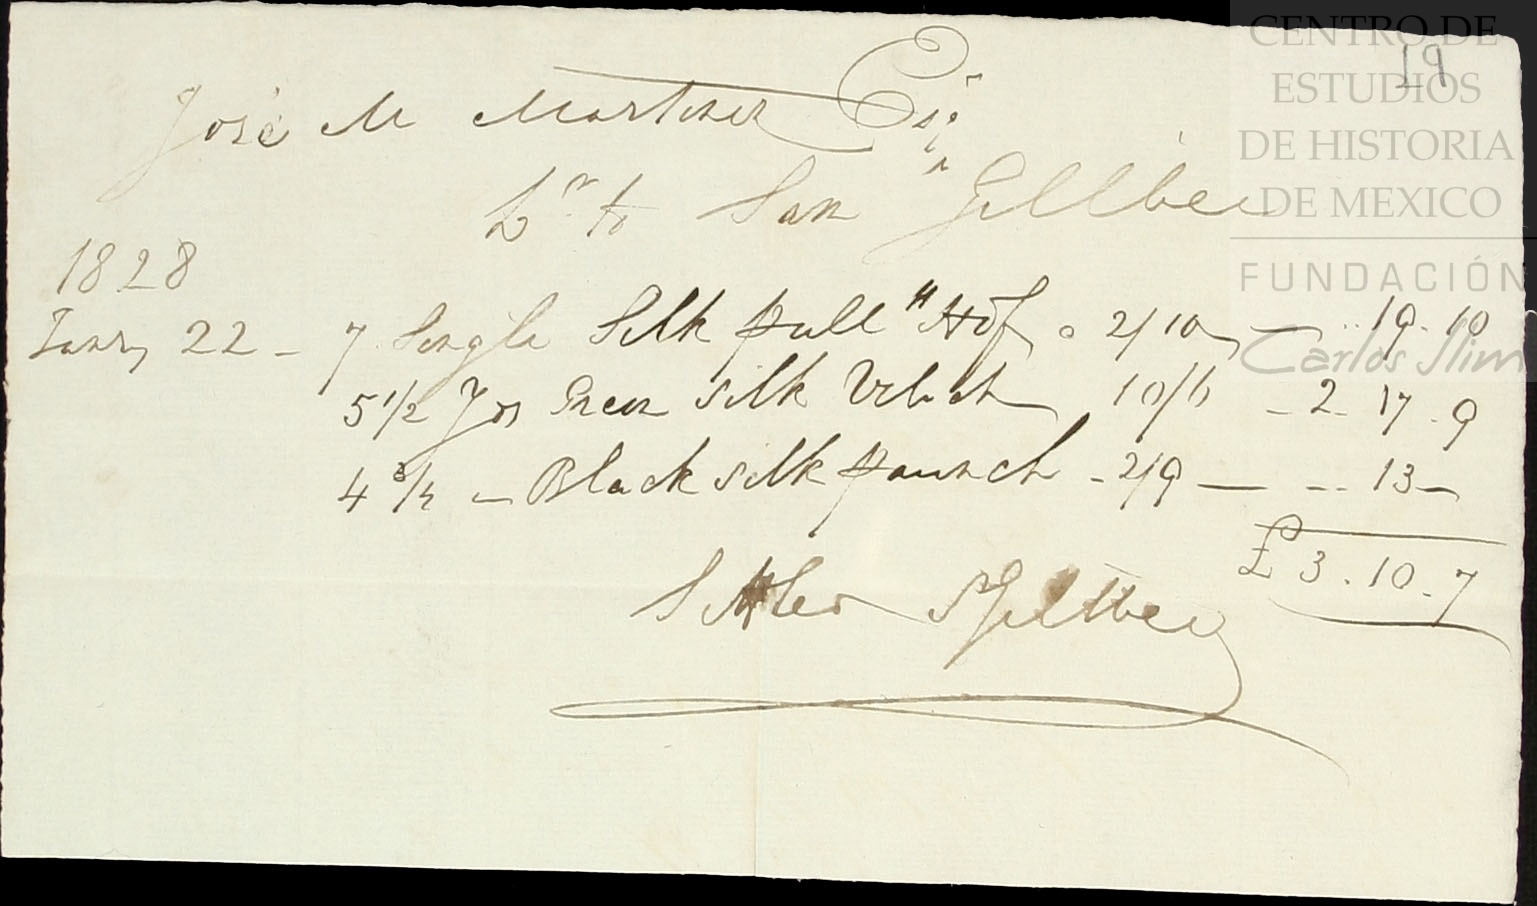 CENTRO DE
ESTUDIOS
DE HISTORIA
DE MEXICO
FUNDACIÓN
Carlos Slim
19
José M Martinez Esqr
Dr. to San
1828
Janry 22 - 7 Single Silk full " 2/10 — 19.10
5 1/2 Yds Green Silk Velvet 10/6 - 2 - 17 - 9
4 3/4 — Black silk - 2/9 — 13 -
£ 3 . 10 . 7